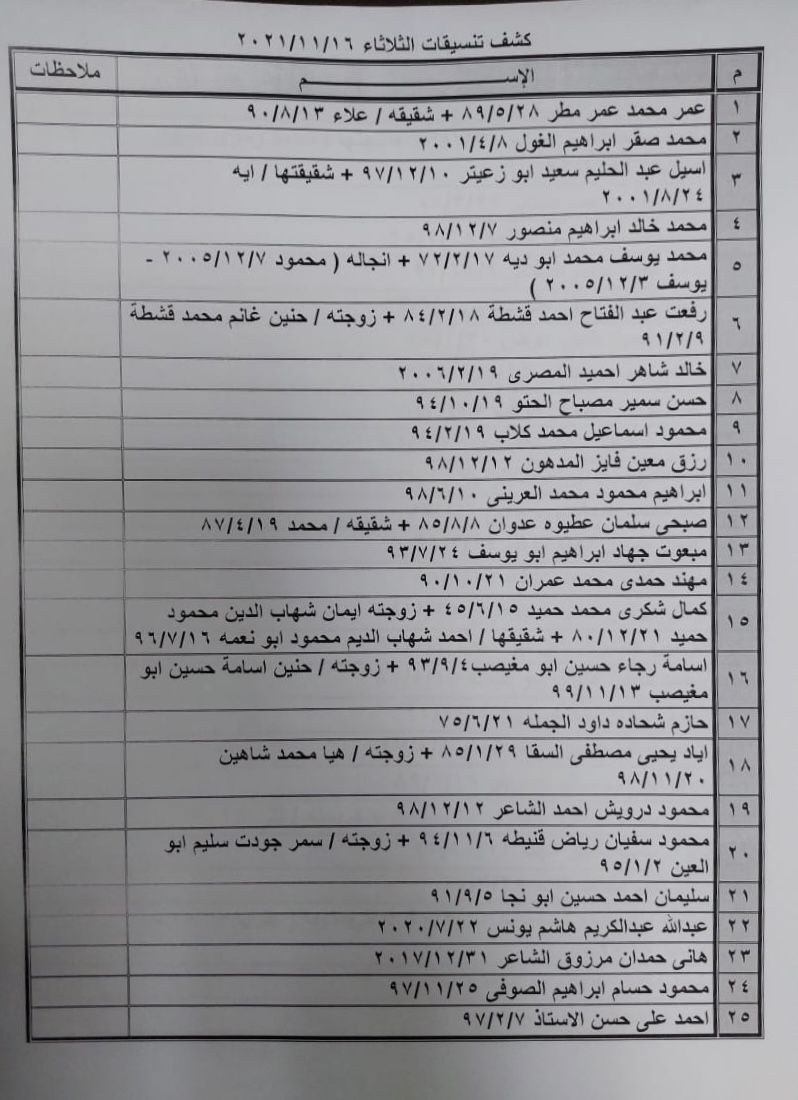 كشف تنسيقات الثلاثاء ٢٠٢١/١١/١٦
م الإســـــــــم ملاحظات
١ عمر محمد عمر مطر ٨٩/٥/٢٨ + شقيقه / علاء ٩٠/٨/١٣
٢ محمد صقر ابراهيم الغول ٢٠٠١/٤/٨
٣ اسيل عبد الحليم سعيد ابو زعيتر ٩٧/١٢/١٠ + شقيقتها / ايه
٢٠٠١/٨/٢٤
٤ محمد خالد ابراهيم منصور ٩٨/١٢/٧
٥ محمد يوسف محمد ابو ديه ٧٢/٢/١٧ + انجاله ( محمود ٢٠٠٥/١٢/٧ -
يوسف ٢٠٠٥/١٢/٣ )
٦ رفعت عبد الفتاح احمد قشطة ٨٤/٢/١٨ + زوجته / حنين غانم محمد قشطة
٩١/٢/٩
٧ خالد شاهر احميد المصرى ٢٠٠٦/٢/١٩
٨ حسن سمير مصباح الحتو ٩٤/١٠/١٩
٩ محمود اسماعيل محمد كلاب ٩٤/٢/١٩
١٠ رزق معين فايز المدهون ٩٨/١٢/١٢
١١ ابراهيم محمود محمد العرينى ٩٨/٦/١٠
١٢ صبحى سلمان عطيوه عدوان ٨٥/٨/٨ + شقيقه / محمد ٨٧/٤/١٩
١٣ مبعوت جهاد ابراهيم ابو يوسف ٩٣/٧/٢٤
١٤ مهند حمدى محمد عمران ٩٠/١٠/٢١
١٥ كمال شكرى محمد حميد ٤٥/٦/١٥ + زوجته ايمان شهاب الدين محمود
حميد ٨٠/١٢/٢١ + شقيقها / احمد شهاب الديم محمود ابو نعمه ٩٦/٧/١٦
١٦ اسامة رجاء حسين ابو مغيصب٩٣/٩/٤ + زوجته / حنين اسامة حسين ابو
مغيصب ٩٩/١١/١٣
١٧ حازم شحاده داود الجمله ٧٥/٦/٢١
١٨ اياد يحيى مصطفى السقا ٨٥/١/٢٩ + زوجته / هيا محمد شاهين
٩٨/١١/٢٠
١٩ محمود درويش احمد الشاعر ٩٨/١٢/١٢
٢٠ محمود سفيان رياض قنيطه ٩٤/١١/٦ + زوجته / سمر جودت سليم ابو
العين ٩٥/١/٢
٢١ سليمان احمد حسين ابو نجا ٩١/٩/٥
٢٢ عبدالله عبدالكريم هاشم يونس ٢٠٢٠/٧/٢٢
٢٣ هانى حمدان مرزوق الشاعر ٢٠١٧/١٢/٣١
٢٤ محمود حسام ابراهيم الصوفى ٩٧/١١/٢٥
٢٥ احمد على حسن الاستاذ ٩٧/٢/٧